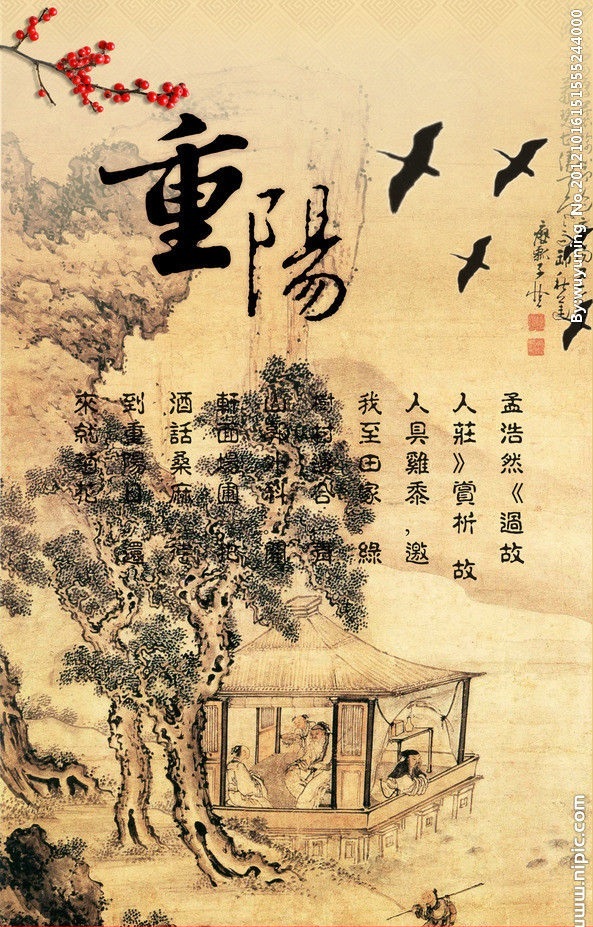 重陽
孟浩然《過故
人莊》賞析 故
人具雞黍,邀
我至田家 綠
樹村邊合
山郭外
軒面場圃 把
酒話桑麻 待
到重陽日 還
來就菊花
By:wuyuning No.20121016151555244000
www.nipic.com